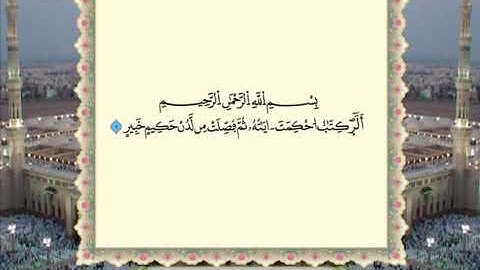 بِسْمِ اِ۬للَّهِ اِ۬لرَّحْمَٰنِ اِ۬لرَّحِيمِ
أَلَٓرۖ كِتَٰبٌ ا۟حْكِمَتَ اٰيَٰتُهُۥ ثُمَّ فُصِّلَتْ مِن لَّدُنْ حَكِيمٍ خَبِيرٍ